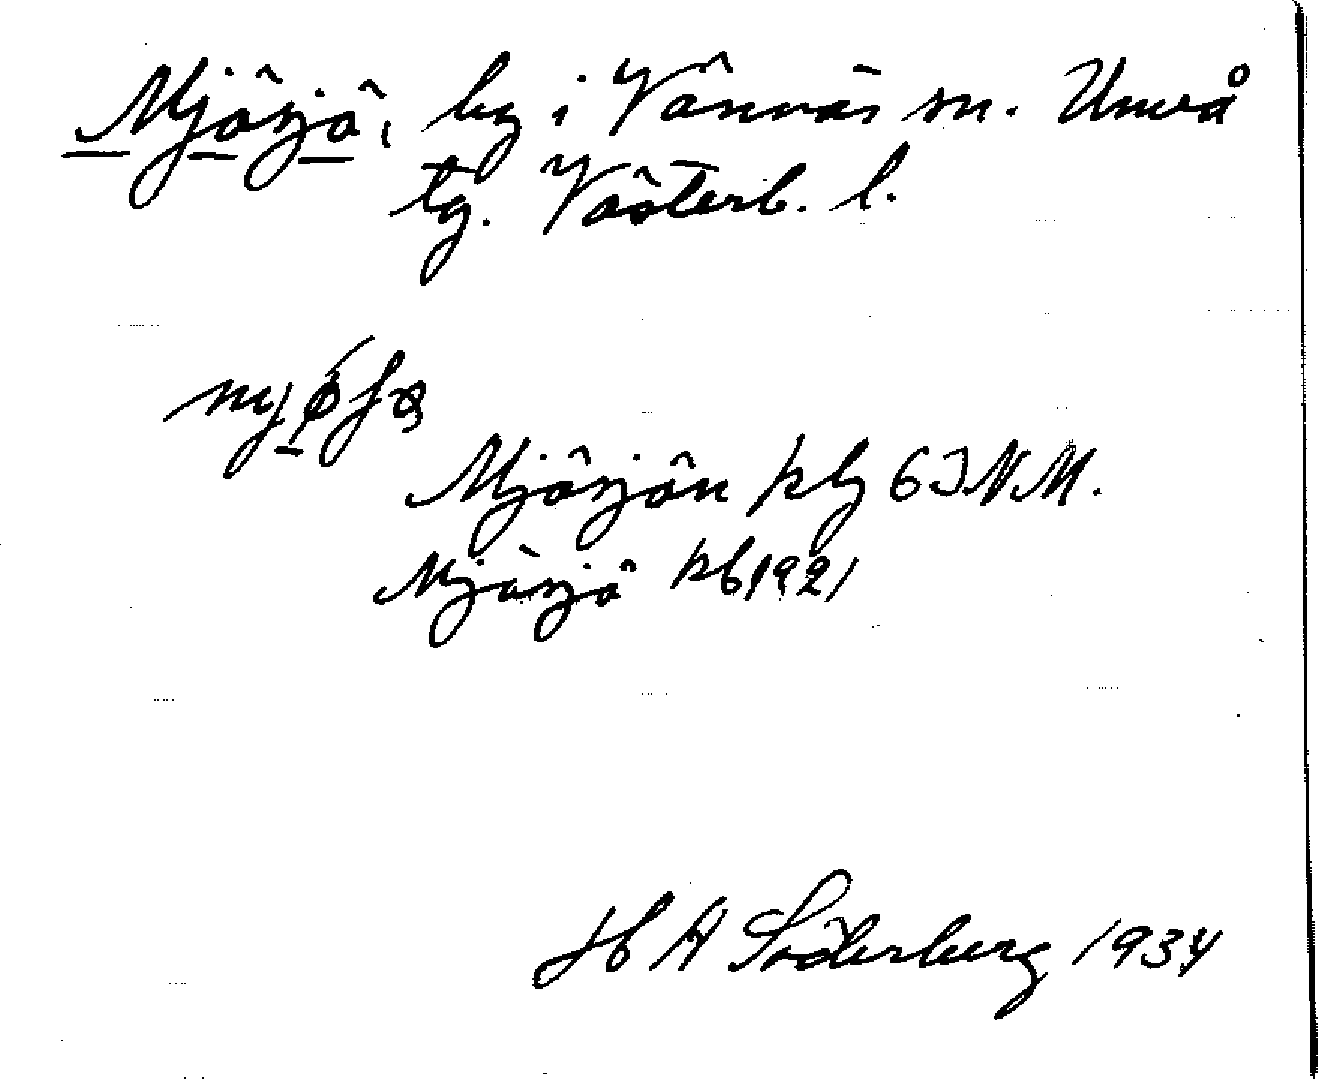 Mjösjö, by i Vännäs sn. Umeå
tg. Västerb. l.
Mjösjön kbl 63 NM.
Mjösjö kb 1921
H A Söderberg 1934